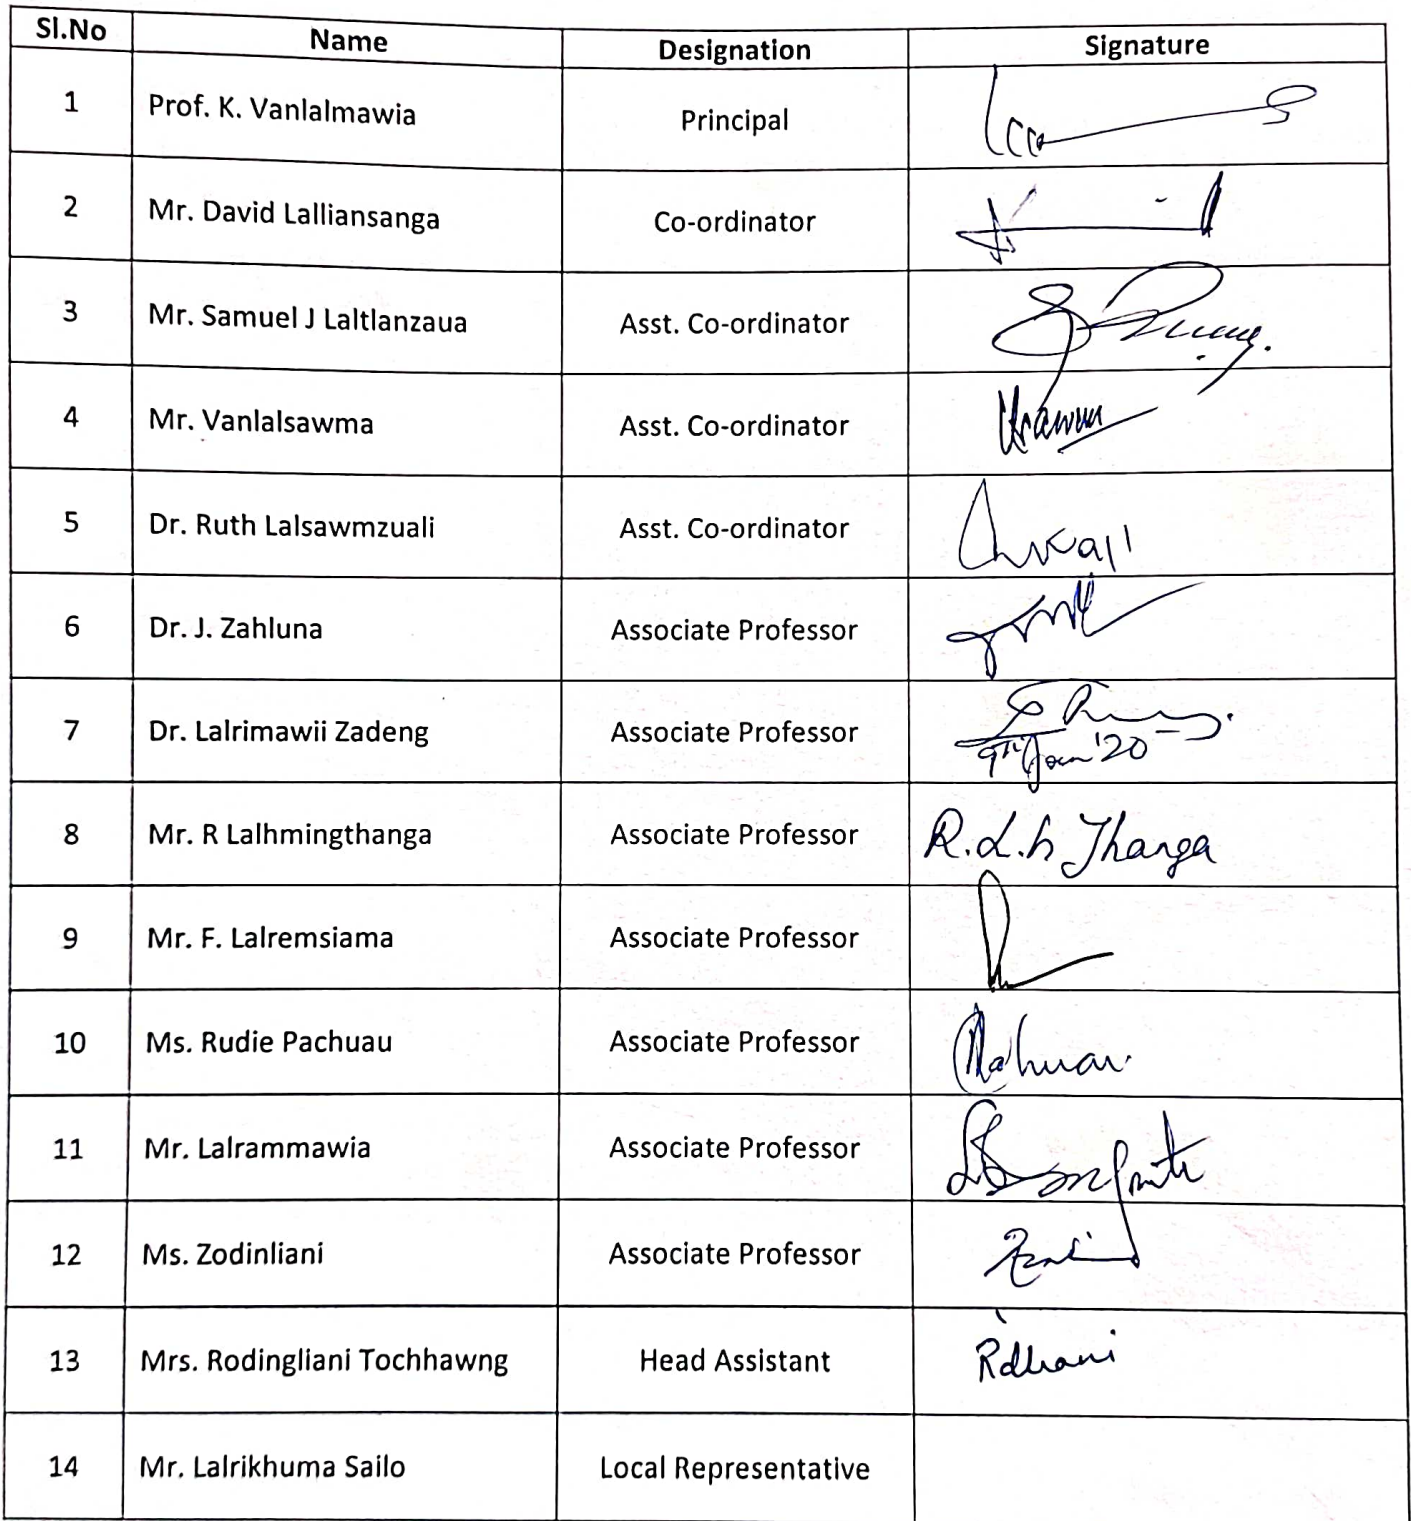 Sl.No Name Designation Signature
1 Prof. K. Vanlalmawia Principal
2 Mr. David Lalliansanga Co-ordinator
3 Mr. Samuel J Laltlanzaua Asst. Co-ordinator
4 Mr. Vanlalsawma Asst. Co-ordinator
5 Dr. Ruth Lalsawmzuali Asst. Co-ordinator
6 Dr. J. Zahluna Associate Professor
7 Dr. Lalrimawii Zadeng Associate Professor
9th Jan '20
8 Mr. R Lalhmingthanga Associate Professor R.L.h Thanga
9 Mr. F. Lalremsiama Associate Professor
10 Ms. Rudie Pachuau Associate Professor
11 Mr. Lalrammawia Associate Professor
12 Ms. Zodinliani Associate Professor
13 Mrs. Rodingliani Tochhawng Head Assistant
14 Mr. Lalrikhuma Sailo Local Representative